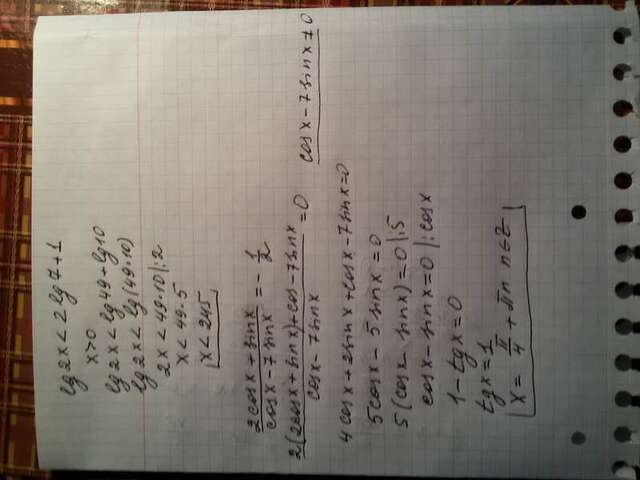 lg 2x < 2 lg 7 + 1
x > 0
lg 2x < lg 49 + lg 10
lg 2x < lg (49·10)
2x < 49·10 |:2
x < 49·5
x < 245
(2cosx + sinx)/(cosx - 7sinx) = -1/2
(2(2cosx + sinx) + cos - 7sinx)/(cosx - 7sinx) = 0 cosx - 7sinx ≠ 0
4cosx + 2sinx + cosx - 7sinx = 0
5cosx - 5sinx = 0
5(cosx - sinx) = 0 |:5
cosx - sinx = 0 |: cosx
1 - tgx = 0
tgx = 1
x = π/4 + πn n∈Z